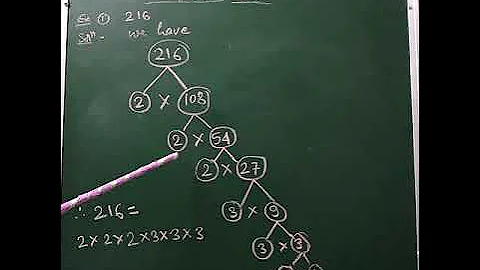 Ex ① 216
Solⁿ - we have
216
2 × 108
2 × 54
2 × 27
3 × 9
3 × 3
∴ 216 =
2×2×2×3×3×3